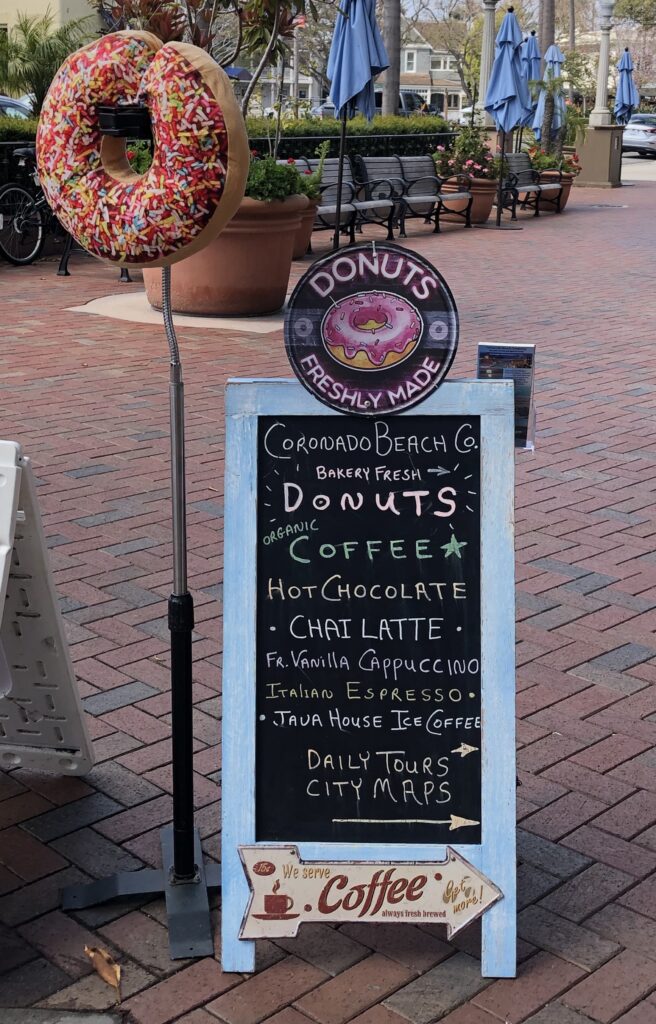 DONUTS
FRESHLY MADE
CORONADO BEACH CO.
BAKERY FRESH
DONUTS
ORGANIC
COFFEE
HOT CHOCOLATE
• CHAI LATTE •
FR. VANILLA CAPPUCCINO
ITALIAN ESPRESSO •
• JAVA HOUSE ICE COFFEE
DAILY TOURS
CITY MAPS
15¢
We serve
Coffee
always fresh brewed
Get more!